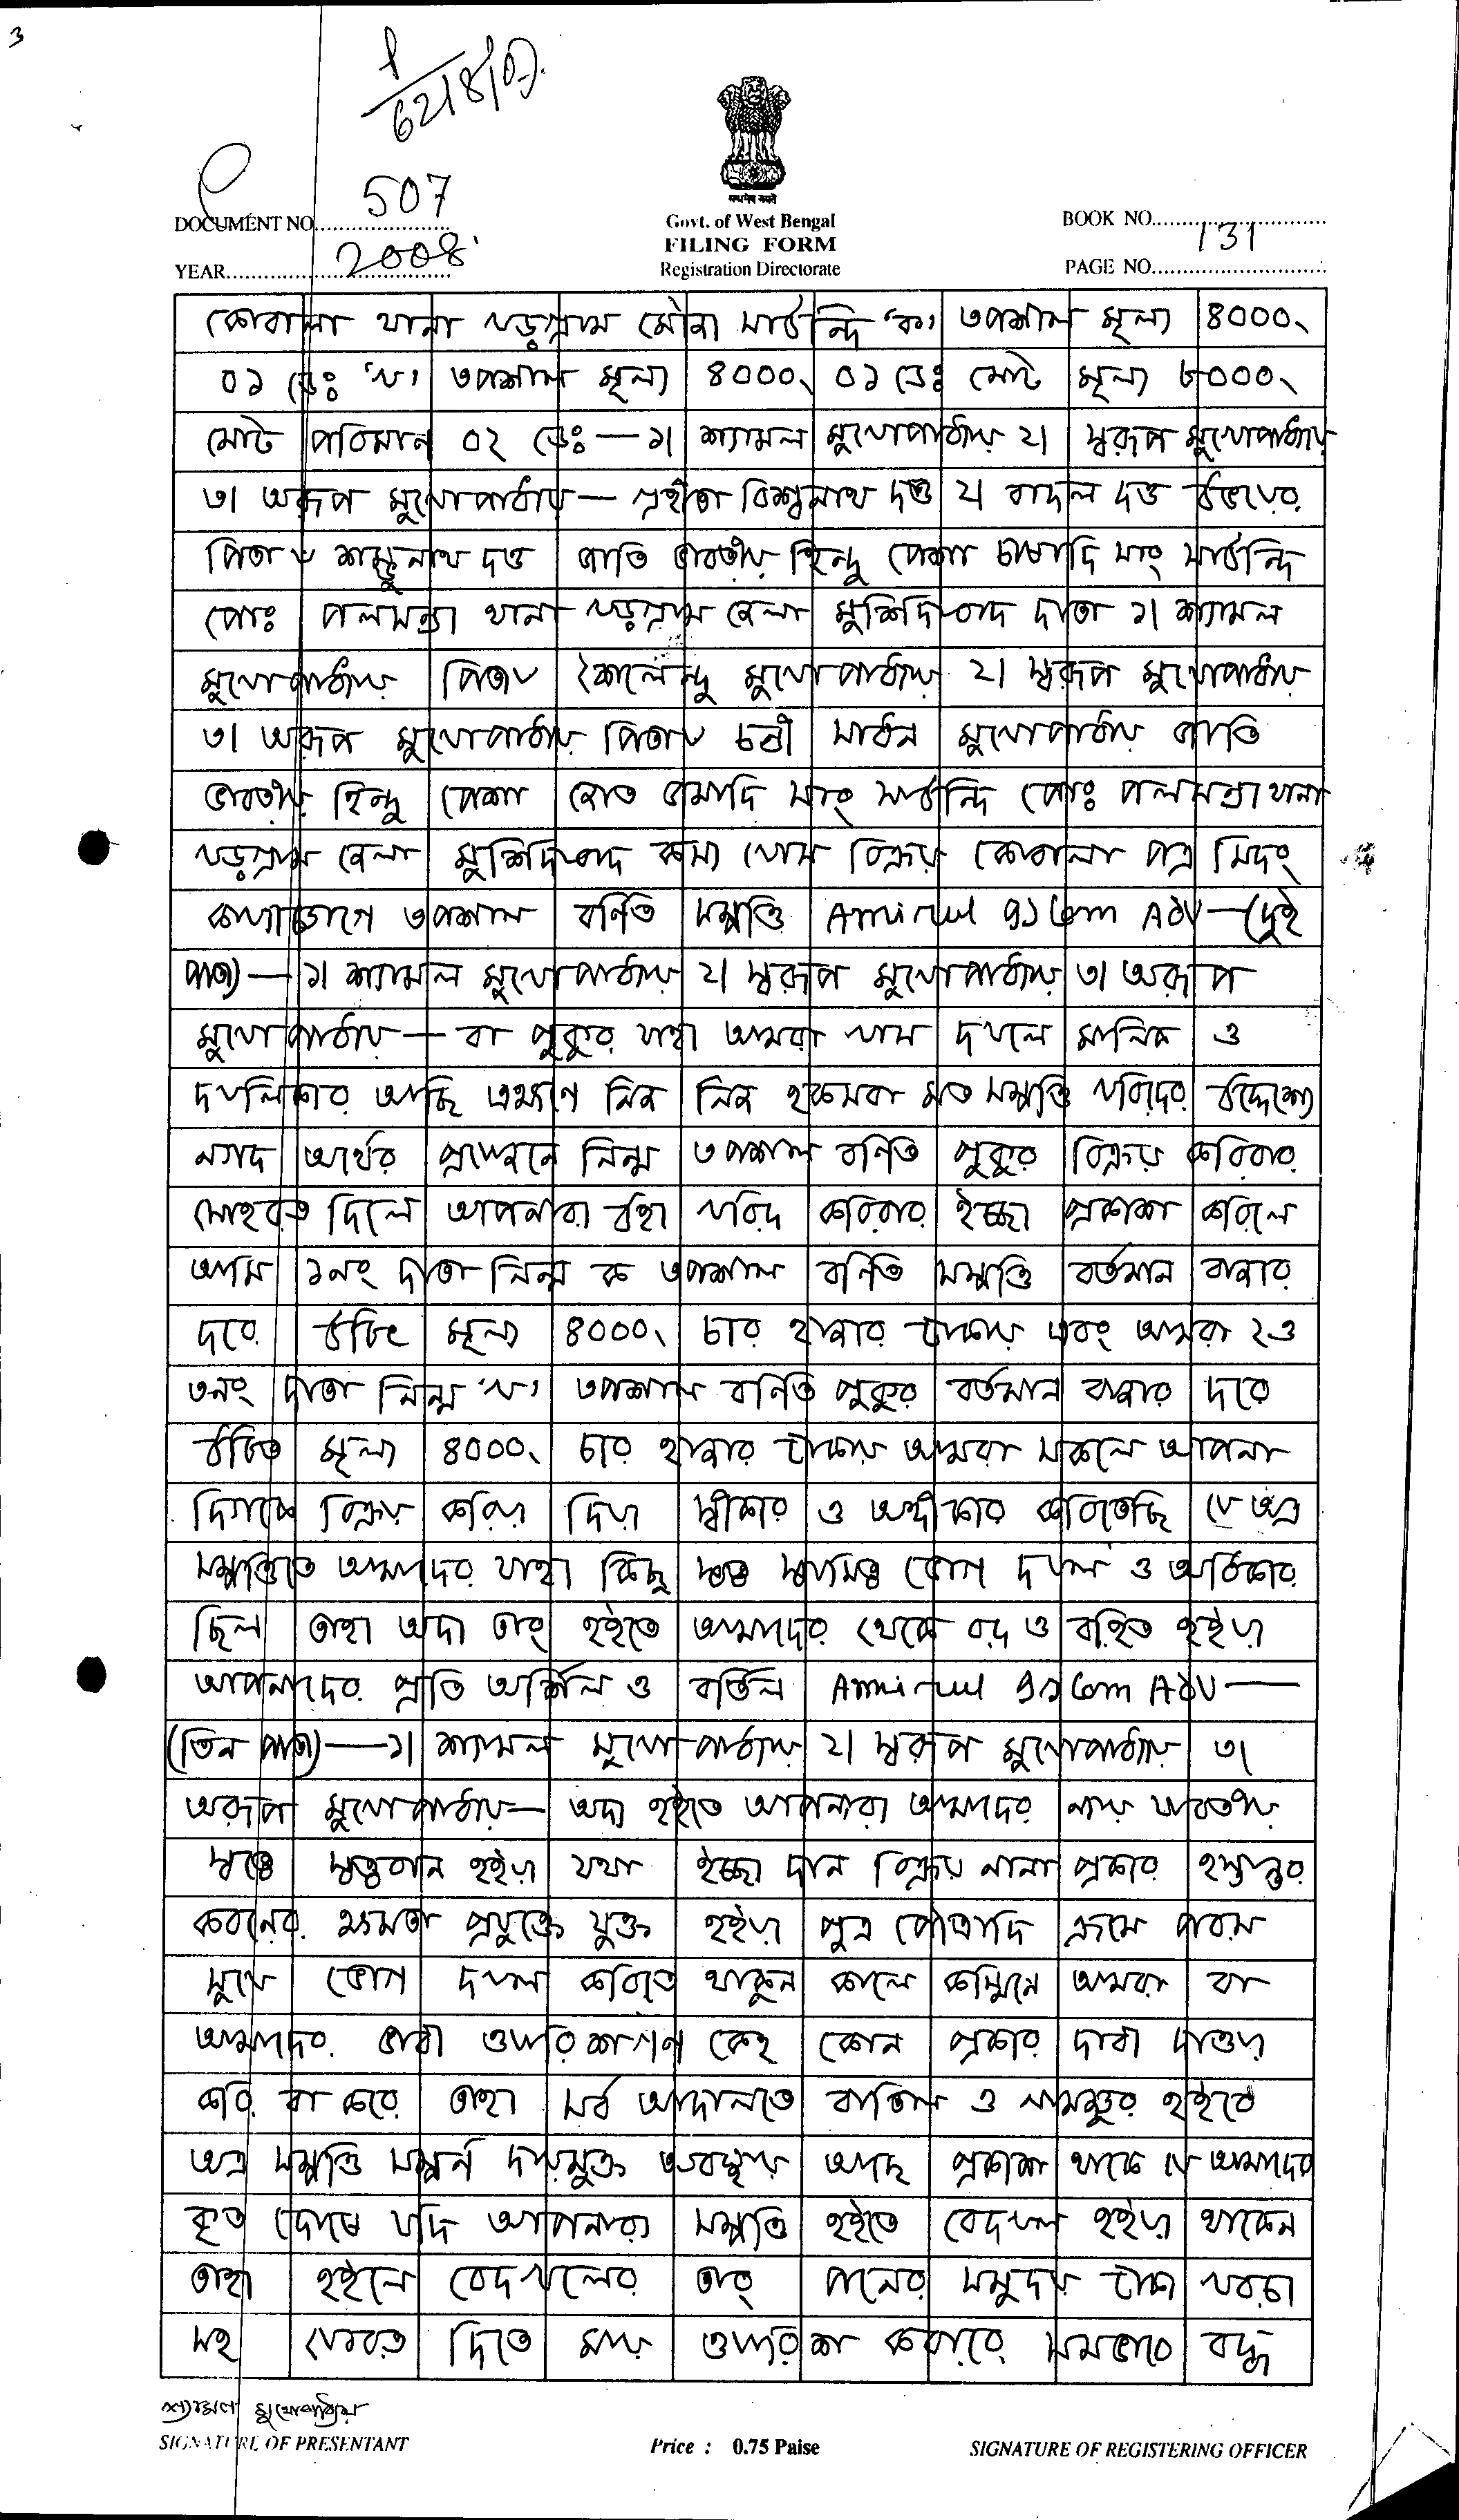 3
DOCUMENT NO. 507
YEAR 2008
Govt. of West Bengal
FILING FORM
Registration Directorate
BOOK NO.
PAGE NO. 131
কোবালা থানা খড়গ্রাম মৌজা সাউন্দি 'ক' তপশীল মূল্য ৪০০০৲
০১ ডেঃ 'খ' তপশীল মূল্য ৪০০০৲ ০১ ডেঃ মোট মূল্য ৮০০০৲
মোট পরিমান ০২ ডেঃ — ১৷ শ্যামল মুখোপাধ্যায় ২৷ স্বরূপ মুখোপাধ্যায়
৩৷ অরূপ মুখোপাধ্যায় — গ্রহীতা বিশ্বনাথ দত্ত ২৷ বাদল দত্ত উভয়ের
পিতা ৺ শম্ভুনাথ দত্ত জাতি ভারতীয় হিন্দু পেশা চাষাদি সাং সাউন্দি
পোঃ থানা খড়গ্রাম জেলা মুর্শিদাবাদ দাতা ১৷ শ্যামল
মুখোপাধ্যায় পিতা ৺ শৈলেন্দু মুখোপাধ্যায় ২৷ স্বরূপ মুখোপাধ্যায়
৩৷ অরূপ মুখোপাধ্যায় পিতা ৺ চন্ডী সাধন মুখোপাধ্যায় জাতি
ভারতীয় হিন্দু পেশা জোত জমাদি সাং সাউন্দি পোঃ থানা
খড়গ্রাম জেলা মুর্শিদাবাদ কস্য খোস বিক্রয় কোবালা পত্র মিদং
কার্য্যাঞ্চাগে তপশীল বর্ণিত সম্পত্তি Amirul Islam Adv — (দুই
পাতা) — ১৷ শ্যামল মুখোপাধ্যায় ২৷ স্বরূপ মুখোপাধ্যায় ৩৷ অরূপ
মুখোপাধ্যায় — বা পুকুর যাহা আমরা খাস দখলে মালিক ও
দখলিকার আছি এক্ষণে নিজ নিজ হকসরা মত সম্পত্তি খরিদের উদ্দেশ্যে
নগদ অর্থের প্রয়োজনে নিম্ন তপশীল বর্ণিত পুকুর বিক্রয় করিবার
সোহরত দিলে আপনারা উহা খরিদ করিবার ইচ্ছা প্রকাশ করিলে
আমি ১নং দাতা নিম্ন ক তপশীল বর্ণিত সম্পত্তি বর্তমান বাজার
দরে উচিৎ মূল্য ৪০০০৲ চার হাজার টাকায় এবং আমরা ২ও
৩নং দাতা নিম্ন 'খ' তপশীল বর্ণিত পুকুর বর্তমান বাজার দরে
উচিত মূল্য ৪০০০৲ চার হাজার টাকায় আমরা সকলে আপনা
দিগকে বিক্রয় করিয়া দিয়া স্বীকার ও অঙ্গীকার করিতেছি যে অত্র
সম্পত্তিতে আমাদের যাহা কিছু স্বত্ত্ব স্বামিত্ব ভোগ দখল ও অধিকার
ছিল তাহা অদ্য তাং হইতে আমাদের থেকে রদ ও রহিত হইয়া
আপনাদের প্রতি অর্শিল ও বর্তিল Amirul Islam Adv —
(তিন পাতা) — ১৷ শ্যামল মুখোপাধ্যায় ২৷ স্বরূপ মুখোপাধ্যায় ৩৷
অরূপ মুখোপাধ্যায় — অদ্য হইতে আপনারা আমাদের ন্যায় যাবতীয়
স্বত্ত্বে স্বত্ত্ববান হইয়া যথা ইচ্ছা দান বিক্রয় নানা প্রকার হস্তান্তর
করনের ক্ষমতা প্রযুক্তে যুক্ত হইয়া পুত্র পৌত্রাদি ক্রমে পরম
সুখে ভোগ দখল করিতে থাকুন কালে কস্মিনে আমরা বা
আমাদের ভাবী ওয়ারিশগণ কেহ কোন প্রকার দাবী দাওয়া
করি বা করে তাহা সর্ব আদালতে বাতিল ও নামঞ্জুর হইবে
অত্র সম্পত্তি সম্পূর্ন দায়মুক্ত অবস্থায় আছে প্রকাশ থাকে যে আমাদের
কৃত দোষে যদি আপনারা সম্পত্তি হইতে বেদখল হইয়া থাকেন
তাহা হইলে বেদখলের তাং পনের সমুদয় টাকা খরচা
সহ ফেরত দিতে মায় ওয়ারিশ সমভাবে বদ্ধ
শ্যামল মুখোপাধ্যায়
SIGNATURE OF PRESENTANT
Price : 0.75 Paise
SIGNATURE OF REGISTERING OFFICER